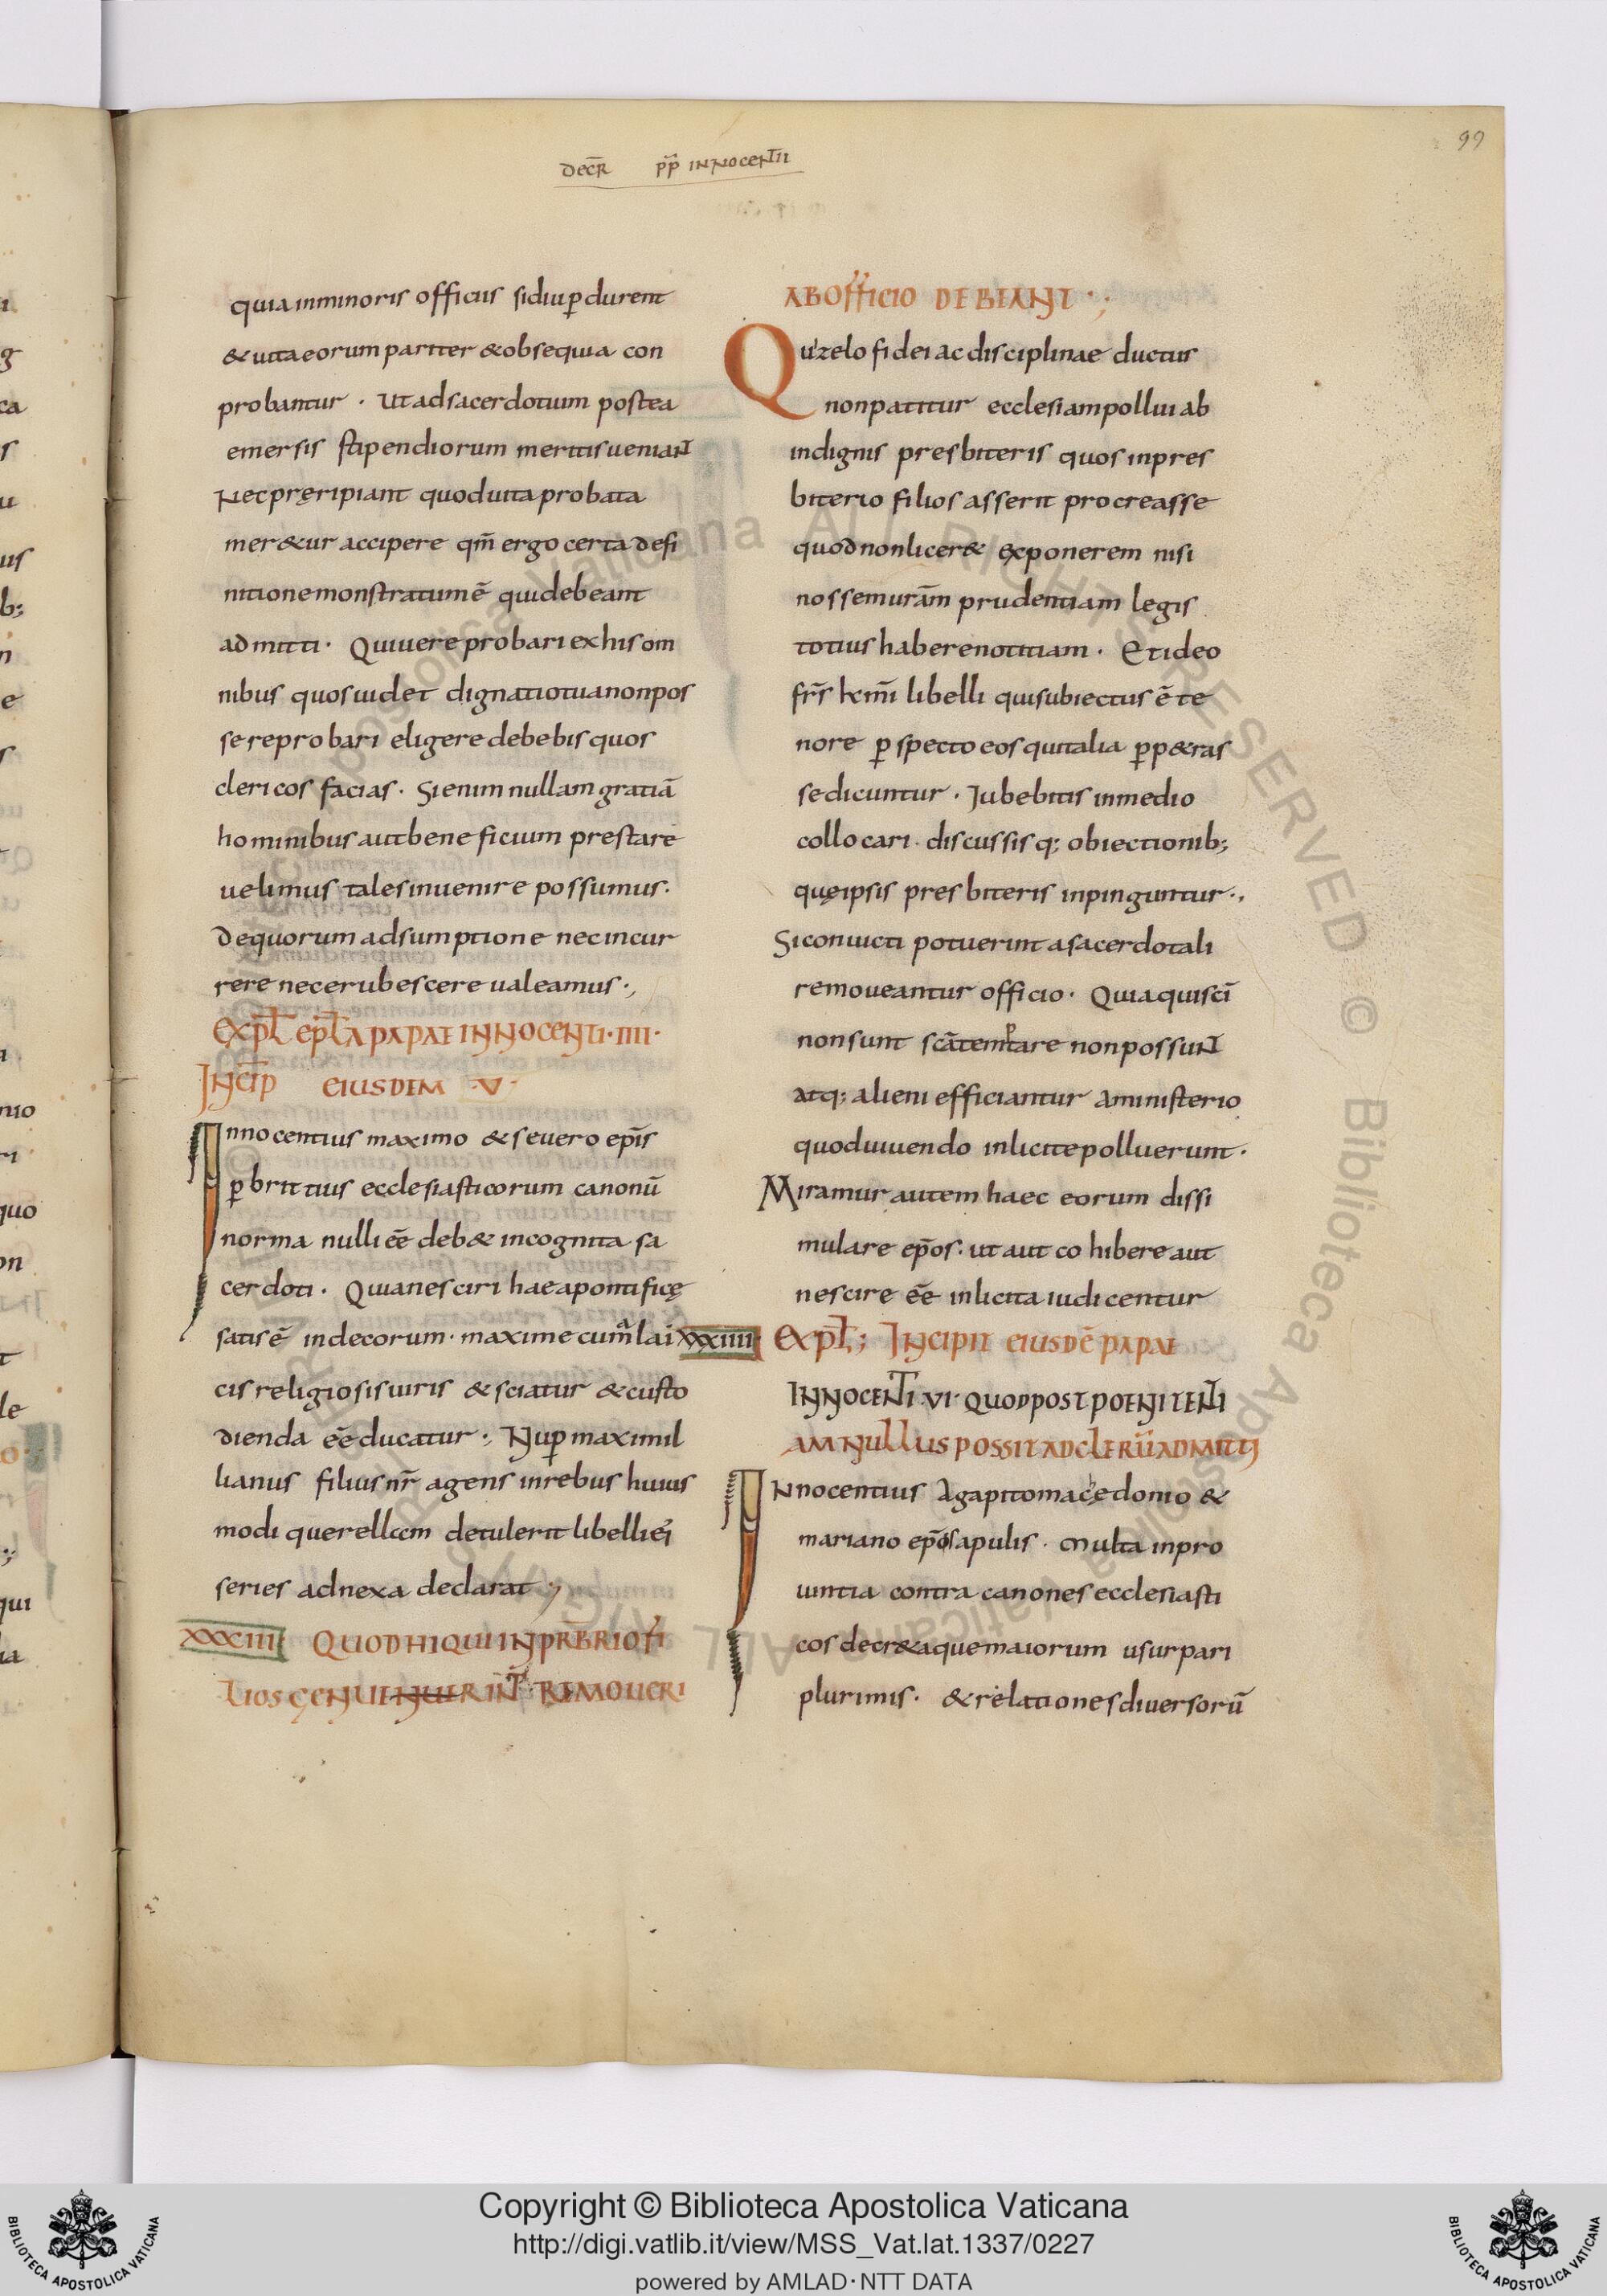 99
decr̄ pp̄ innocentii
quia inminoris officiis sidiup̄durent
& uita eorum pariter & obsequia con
probantur . ut adsacerdotium postea
emersis stipendiorum meritis ueniant
Nec pręripiant quod uita probata
mer&ur accipere qm̄ ergo certa defi
nitione monstratum ē qui debeant
admitti . Qui uere probari ex his om
nibus quos uidet dignatio tua non pos
se reprobari eligere debebis quos
clericos facias . Si enim nullam gratiā
hominibus aut beneficium prestare
uelimus tales inuenire possumus .
De quorum adsumptione nec incur
rere nec erubescere ualeamus .,
Expl̄ epl̄a papae innocenti . IIII .
Incip̄ eiusdem V .
Innocentius maximo & seuero ep̄is
p̄ brittius ecclesiasticorum canonū
norma nulli eē deb& incognita sa
cerdoti . Quia nesciri haec a pontificę
satis ē indecorum . maxime cum a lai
cis religiosis uiris & sciatur & custo
dienda eē ducatur ., Nup̄ maximil
lianus filius nr̄ agens in rebus huius
modi querellam detulerit libelli ei
series adnexa declarat .,
XXXIII Quod hi qui in pr̄brio fi
lios genuenuerint . remoueri
ab officio debeant .,
Qui zelo fidei ac disciplinae ductus
non patitur ecclesiam pollui ab
indignis presbiteris quos in pres
biterio filios asserit procreasse
quod non licer& exponerem nisi
nossem uram̄ prudentiam legis
totius habere notitiam . Et ideo
fr̄s km̄i libelli qui subiectus ē te
nore p̄specto eos qui talia p̄p&ras
se dicuntur . Iubebitis in medio
collocari . discussisq; obiectionib;
quę ipsis presbiteris inpinguntur .,
Si conuicti potuerint a sacerdotali
remoueantur officio . Quia qui sc̄i
non sunt scā temtare non possunt
atq; alieni efficiantur a ministerio
quod uiuendo inlicite polluerunt .
Miramur autem haec eorum dissi
mulare ep̄os . ut aut cohibere aut
nescire eē inlicita iudicentur
XXXIIII Expl̄; Incipit eiusdē papae
Innocenti . VI . quod post poeniteti
am nullus possit ad clerū admitti
Innocentius Agapito macedonio &
mariano ep̄os apulis . Multa in pro
uintia contra canones ecclesiasti
cos decr&aque maiorum usurpari
plurimis . & relationes diuersorū
Copyright © Biblioteca Apostolica Vaticana
http://digi.vatlib.it/view/MSS_Vat.lat.1337/0227
powered by AMLAD·NTT DATA
BIBLIOTECA APOSTOLICA VATICANA
BIBLIOTECA APOSTOLICA VATICANA